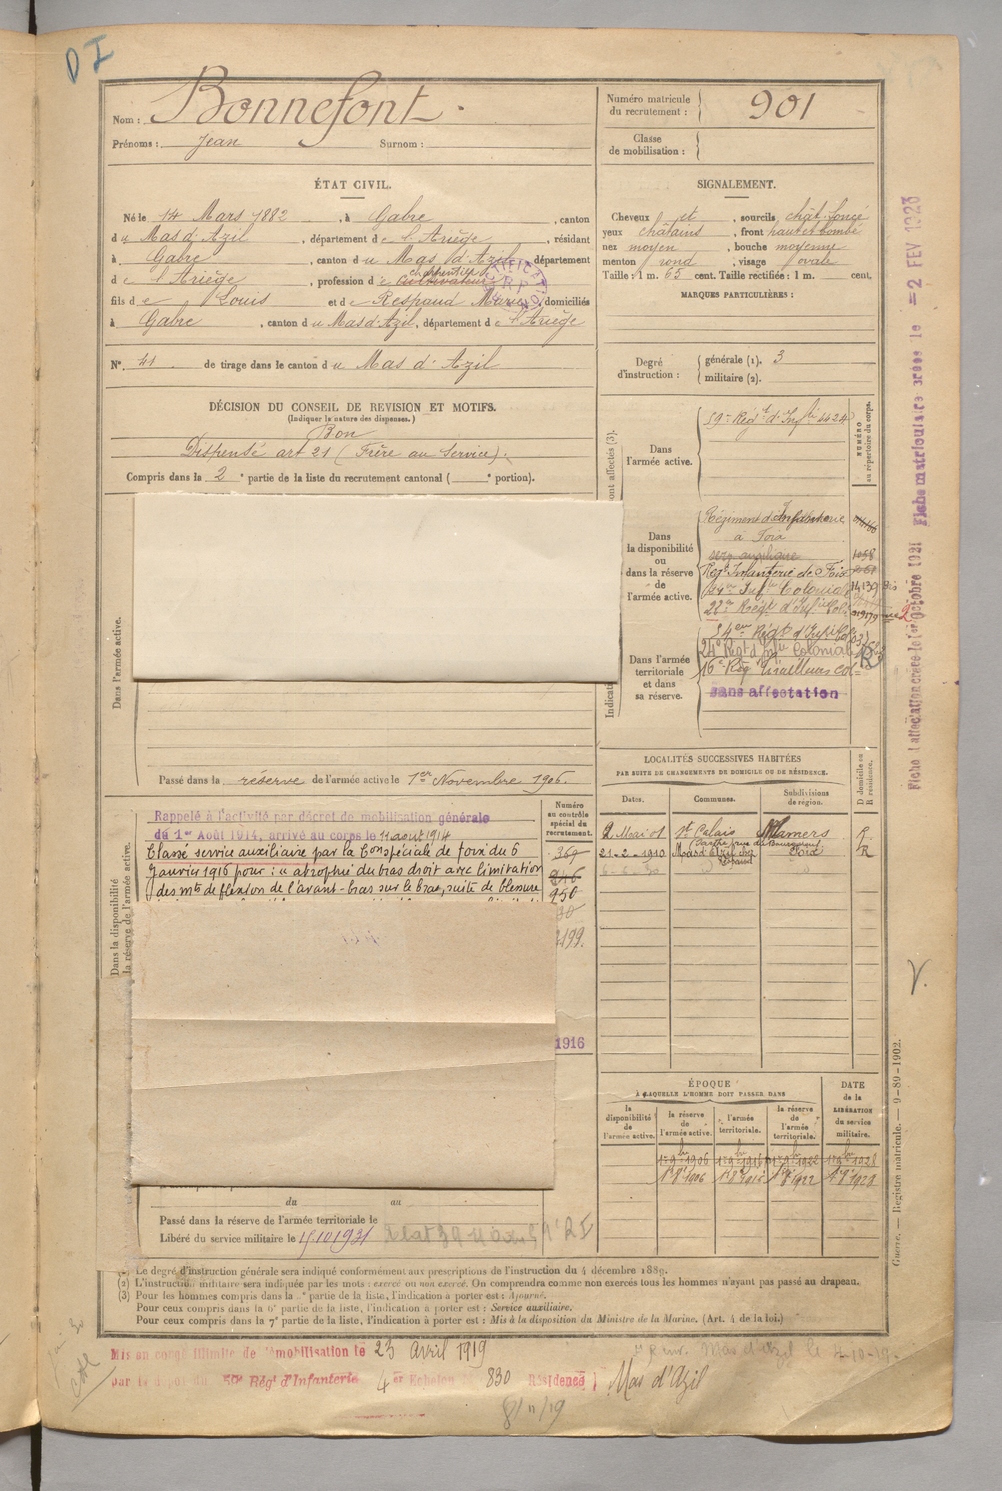 D I
Nom : Bonnefont
Prénoms : Jean Surnom :
Numéro matricule du recrutement : 901
Classe de mobilisation :
ÉTAT CIVIL.
Né le 14 Mars 1882, à Gabre, canton
du Mas d'Azil, département de l'Ariège, résidant
à Gabre, canton du Mas d'Azil, département
de l'Ariège, profession de charpentier cultivateur
fils de Louis et de Respaud Marie, domiciliés
à Gabre, canton du Mas d'Azil, département de l'Ariège
N° 41 de tirage dans le canton du Mas d'Azil
SIGNALEMENT.
Cheveux et, sourcils chât foncé
yeux châtains, front haut et bombé
nez moyen, bouche moyenne
menton rond, visage ovale
Taille : 1 m. 65 cent. Taille rectifiée : 1 m. cent.
MARQUES PARTICULIÈRES :
Degré d'instruction : générale (1). 3
militaire (2).
DÉCISION DU CONSEIL DE REVISION ET MOTIFS.
(Indiquer la nature des dispenses.)
Bon
Dispensé art 21 (Frère au Service).
Compris dans la 2e partie de la liste du recrutement cantonal ( e portion).
NUMÉRO au répertoire du corps.
Dans l'armée active.
59e Régt d'Infie 4424
Dans la disponibilité ou dans la réserve de l'armée active.
Régiment d'Infanterie
à Foix
serv auxiliaire 1058
Regt Infanterie de Foix
24e Infie Coloniale 14139 bis
22e Régt d'Infie Col.
Dans l'armée territoriale et dans sa réserve.
54em Régt d'Infie Col
24e Régt d'Infie Coloniale
16e Rég Tirailleurs Col
sans affectation
Dans l'armée active.
Passé dans la réserve de l'armée active le 1er Novembre 1906.
Dans la disponibilité
la réserve de l'armée active.
Rappelé à l'activité par décret de mobilisation générale
du 1er Août 1914, arrivé au corps le 11 aout 1914
Classé service auxiliaire par la Con spéciale de foix du 6
Janvier 1916 pour : « atrophie du bras droit avec limitation
des mts de flexion de l'avant-bras sur le bras, suite de blessure
Numéro au contrôle spécial du recrutement.
369
950
2199.
1916
LOCALITÉS SUCCESSIVES HABITÉES
PAR SUITE DE CHANGEMENTS DE DOMICILE OU DE RÉSIDENCE.
Dates. Communes. Subdivisions de région. D domicile ou R résidence.
2 Mai 01 St Calais Mamers R.
21-2-1910 Mas d'Azil Foix R
ÉPOQUE
À LAQUELLE L'HOMME DOIT PASSER DANS
la disponibilité de l'armée active.
la réserve de l'armée active.
l'armée territoriale.
la réserve de l'armée territoriale.
DATE de la LIBÉRATION du service militaire.
1er 9bre 1906 1er 9bre 1916 1er 9bre 1922 1er 9bre 1928
du au
Passé dans la réserve de l'armée territoriale le
Libéré du service militaire le 15/10 1931
(1) Le degré d'instruction générale sera indiqué conformément aux prescriptions de l'instruction du 4 décembre 1889.
(2) L'instruction militaire sera indiquée par les mots : exercé ou non exercé. On comprendra comme non exercés tous les hommes n'ayant pas passé au drapeau.
(3) Pour les hommes compris dans la e partie de la liste, l'indication à porter est : Ajourné.
Pour ceux compris dans la 6e partie de la liste, l'indication à porter est : Service auxiliaire.
Pour ceux compris dans la 7e partie de la liste, l'indication à porter est : Mis à la disposition du Ministre de la Marine. (Art. 4 de la loi.)
Mis en congé illimité de démobilisation le 23 Avril 1919
par le dépôt du Régt d'Infanterie 4er Echelon 830 Résidence Mas d'Azil
8/11/19
Mas d'Azil le 4-10-19.
Fiche d'affectation créée le 1er Octobre 1921 Fiche matriculaire créée le = 2 FEV 1923
V.
Guerre. — Registre matricule. — 9-89-1902.